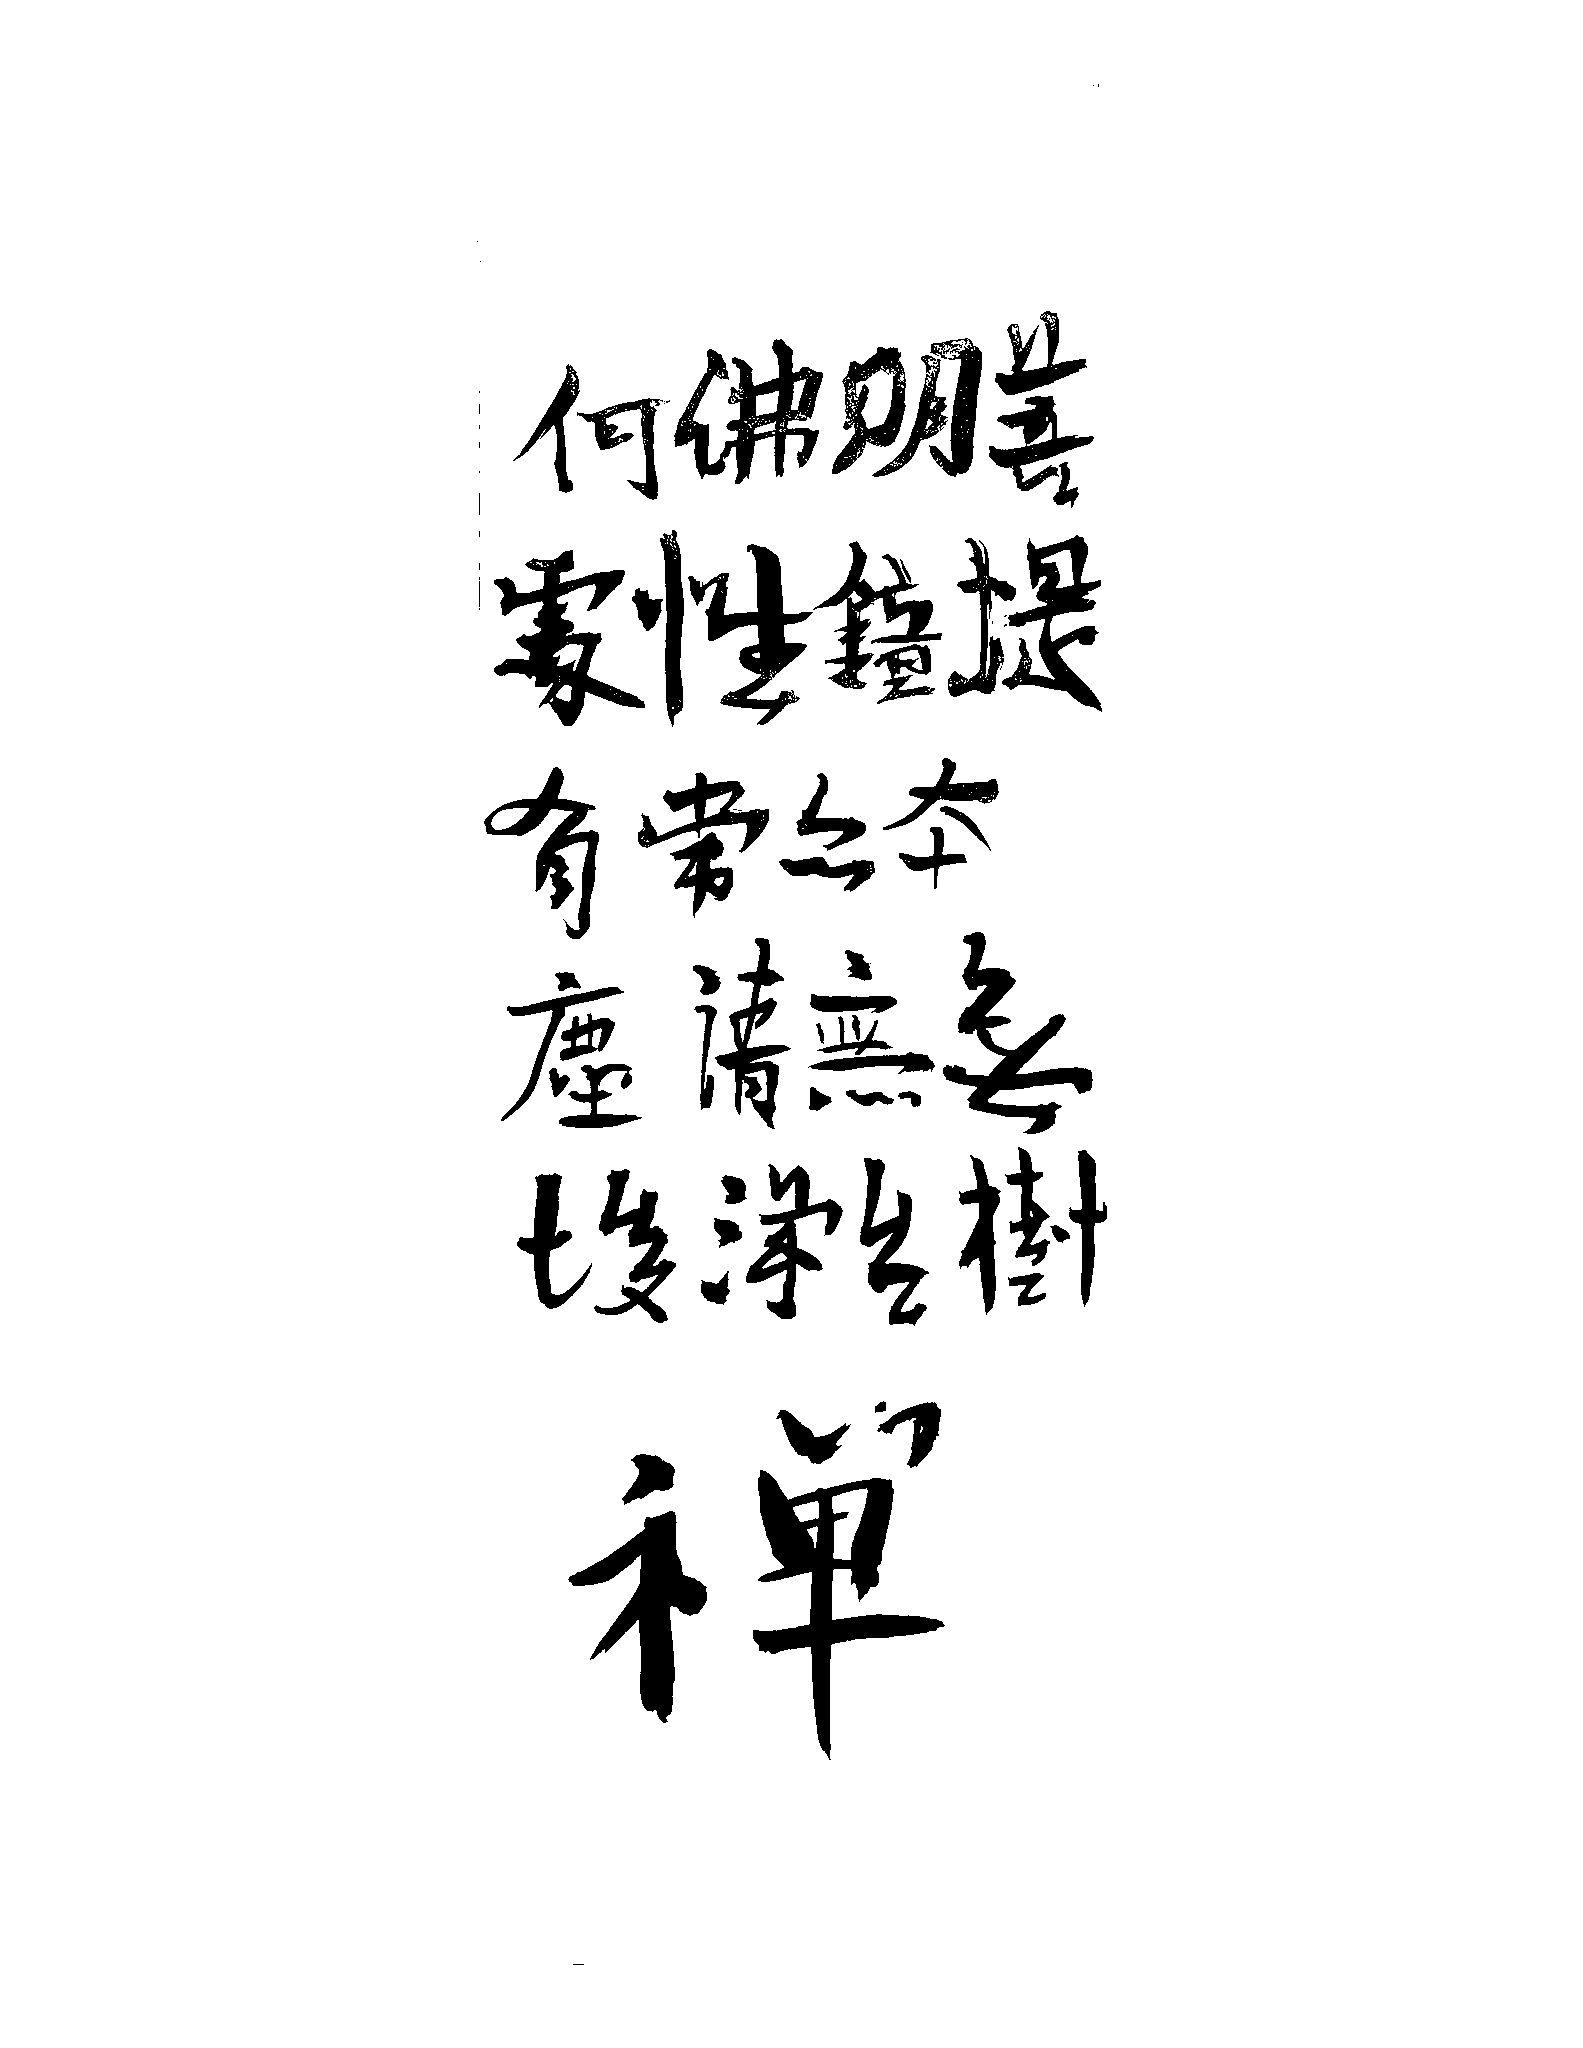 菩提本無樹
明鏡亦無台
佛性常清淨
何處有塵埃
禪